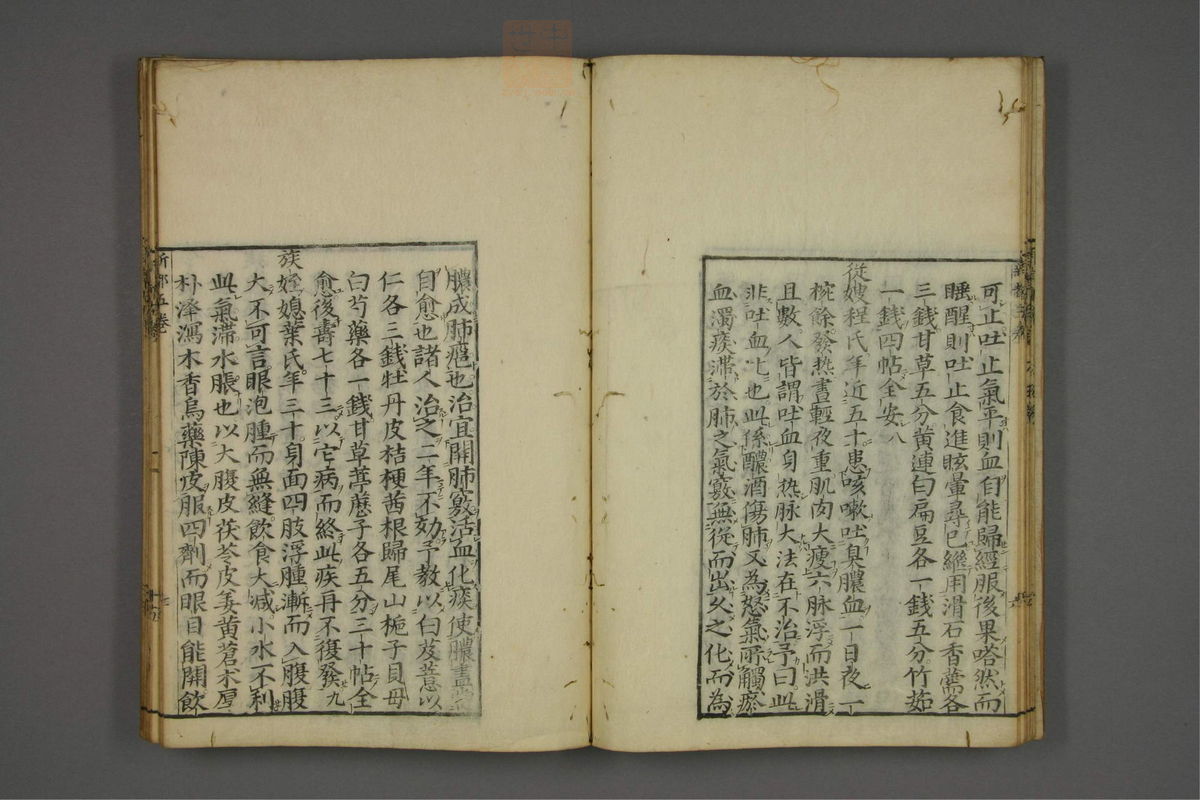 可止吐止氣平則血自能歸經服後果嗒然而
睡醒則吐止食進眩暈尋已繼用滑石香薷各
三錢甘草五分黃連白扁豆各一錢五分竹茹
一錢四帖全安八
從嫂程氏年近五十患咳嗽吐臭膿血一日夜一
椀餘發热晝輕夜重肌肉大瘦六脉浮而洪滑
且數人皆謂吐血身热脉大法在不治予曰此
非吐血比也此係醲酒傷肺又為怒氣所觸瘀
血濁痰滯於肺之氣竅無從而出久之化而為
膿成肺癰也治宜開肺竅活血化痰使膿盡
自愈也諸人治之二年不効予教以白芨薏以
仁各三錢牡丹皮桔梗茜根歸尾山梔子貝母
白芍藥各一錢甘草葶藶子各五分三十帖全
愈後壽七十三以它病而終此疾再不復發九
族姪媳葉氏年三十身面四肢浮腫漸而入腹腹
大不可言眼泡腫而無縫飲食大减小水不利
此氣滯水脹也以大腹皮茯苓皮姜黃蒼朮厚
朴澤瀉木香烏藥陳皮服四劑而眼目能開飲